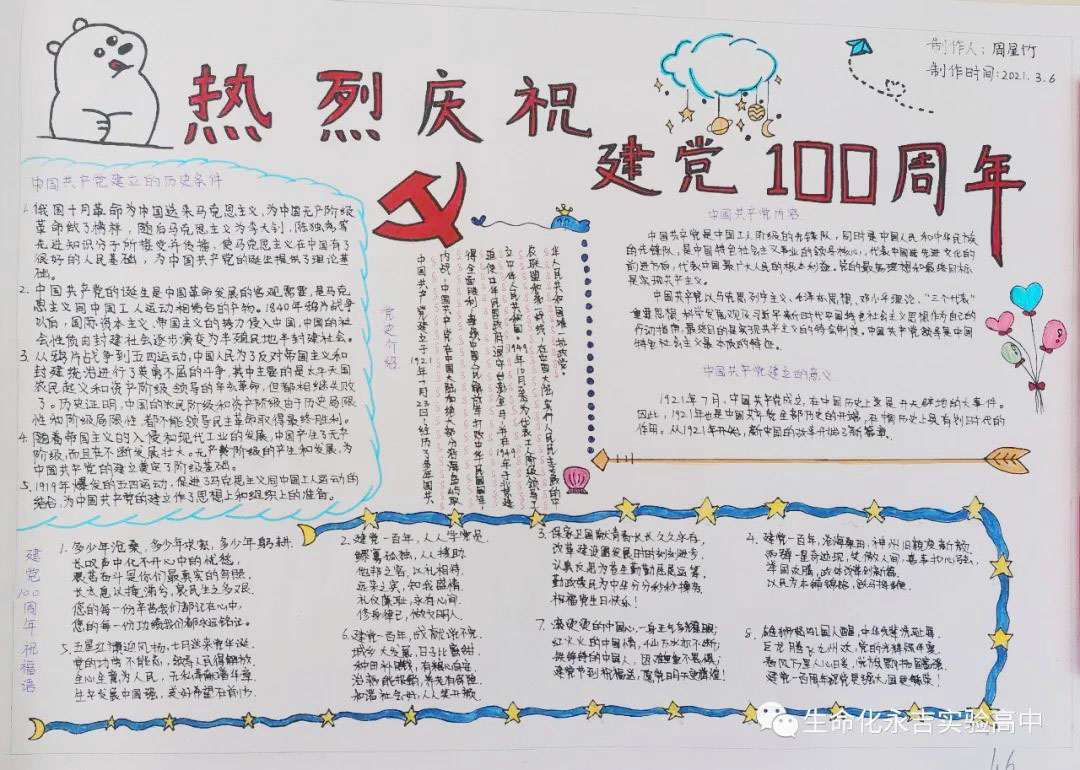 制作人：周星竹
制作时间：2021.3.6
热烈庆祝
建党100周年
中国共产党建立的历史条件
1. 俄国十月革命为中国送来马克思主义，为中国无产阶级
革命做了榜样，随后马克思主义为李大钊，陈独秀等
先进知识分子所接受并传播，使马克思主义在中国有了
很好的人民基础，为中国共产党的诞生提供了理论基
础。
2. 中国共产党的诞生是中国革命发展的客观需要，是马克
思主义同中国工人运动相结合的产物。1840年鸦片战争
以后，国际资本主义、帝国主义的势力侵入中国，中国的社
会性质由封建社会逐步演变为半殖民地半封建社会。
3. 从鸦片战争到五四运动，中国人民为了反对帝国主义和
封建统治进行了英勇不屈的斗争，其中主要的是太平天国
农民起义和资产阶级领导的辛亥革命，但都相继失败
了。历史证明，中国的农民阶级和资产阶级由于历史局限
性和阶级局限性，都不能领导民主革命取得最终胜利。
4. 随着帝国主义的入侵和现代工业的发展，中国产生了无产
阶级，而且在不断发展壮大。无产阶级的产生和发展，为
中国共产党的建立奠定了阶级基础。
5. 1919年爆发的五四运动，促进了马克思主义同中国工人运动的
结合，为中国共产党的建立作了思想上和组织上的准备。
党史介绍
中国共产党建立于1921年7月23日，经历了多年国共
内战，中国共产党在中国大陆和绝大部分沿海岛屿取
得全面胜利，并指挥中国人民解放军打败中华民国国军，
迫使中华民国政府退守台勤金马，并在1949年于北京建
立中华人民共和国。1949年10月至今为代表工人阶级领导工
农联盟和统一战线，在中国大陆实行人民民主专政的中
华人民共和国唯一执政党。
中国共产党内容
中国共产党是中国工人阶级的先锋队，同时是中国人民和中华民族
的先锋队，是中国特色社会主义事业的领导核心，代表中国先进文化的
前进方向，代表中国最广大人民的根本利益。党的最高理想和最终目标
是实现共产主义。
中国共产党以马克思列宁主义、毛泽东思想、邓小平理论、“三个代表”
重要思想、科学发展观、习近平新时代中国特色社会主义思想作为自己的
行动指南，最终目的是实现共产主义的社会制度。中国共产党领导是中国
特色社会主义最本质的特征。
中国共产党建立的意义
1921年7月，中国共产党成立，在中国历史上是开天辟地的大事件。
因此，1921年也是中国共产党全部历史的开端，在中国历史上具有划时代的
作用。从1921年开始，新中国的故事开始了新篇章。
建党100周年祝福语
1. 多少年沧桑，多少年求索，多少年躬耕，
长叹声中化不开心中的忧愁，
艰苦奋斗是你们最真实的写照，
长太息以掩涕兮，哀民生之多艰，
您的每一份辛苦我们都记在心中，
您的每一份功绩我们都永远铭记。
2. 建党一百年，人人学党是，
鳏寡孤独，人人援助，
他邦之客，以礼相待，
远来之宾，知我盛情，
礼仪廉耻，永存心间，
修身律己，做文明人。
3. 保家卫国献青春长长久久永存，
改革建设图发展时时刻刻进步，
认真反思为苍生勤勤恳恳运筹，
勤政爱民为中华分分秒秒操劳，
祝福党生日快乐！
4. 建党一百年，沧海桑田，神州旧貌换新颜，
以民为本倾锦绣，欲与歌德
5. 五星红旗迎风扬，七日迎来党华诞，
党的功劳不能忘，领导人民得解放，
全心全意为人民，无私奉献谱华章，
生平发展中国强，美好希望在前方。
6. 建党一百年，成就说不完，
城乡大发展，日子比蜜甜，
种田补贴钱，有粮心自安，
治病能报销，养老有保险，
和谐社会好，人人笑开颜。
7. 滚烫烫的中国心，一身正气多耀眼；
红火火的中国情，千山万水亦不断；
建党节到祝福送，愿党明天更辉煌！
8. 雄狮怒吼国人醒，中华民族洗耻辱，
巨龙腾飞九州欢，党的光辉照华夏，
春风万里人心归，党旗飘扬国富强，
建党一百周年祝党是强大国更繁荣！
生命化永吉实验高中